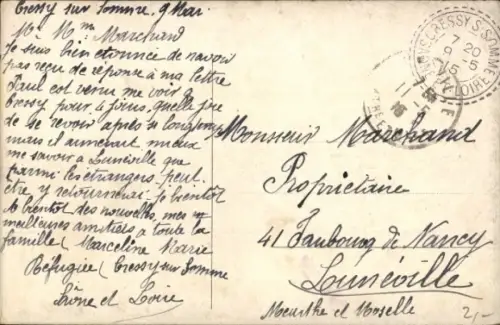 Cressy sur Somme, 9 Mai
Mr Mme Marchand
Je suis bien étonnée de navoir
pas reçu de réponse à ma lettre
Paul est venu me voir à
Cressy pour 4 jours, quelle joie
de se revoir après si longtemps
mais il aimerait mieux
me savoir à Lunéville que
parmi les étrangers, peut
être y retournerai je bientôt
A bientôt des nouvelles, mes
meilleures amitiés à toute la
famille
Marceline Marie
Réfugiée Cressy sur Somme
Saône et Loire
CRESSY S. SOMME
7 20
9 - 5
15
LOIRE
Monsieur Marchand
Propriétaire
41 Faubourg de Nancy
Lunéville
Meurthe et Moselle
2,-